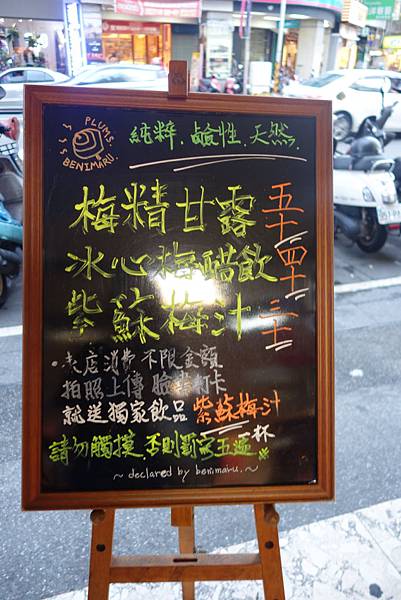 PLUMS.
BENIMARU.
純粹.鹹性.天然.
梅精甘露 五十
冰心梅醋飲 四十
紫蘇梅汁 三十
•來店消費不限金額
拍照上傳 臉書打卡
就送獨家飲品 紫蘇梅汁
杯
請勿觸摸.否則罰寫五遍
~ declared by benimaru. ~